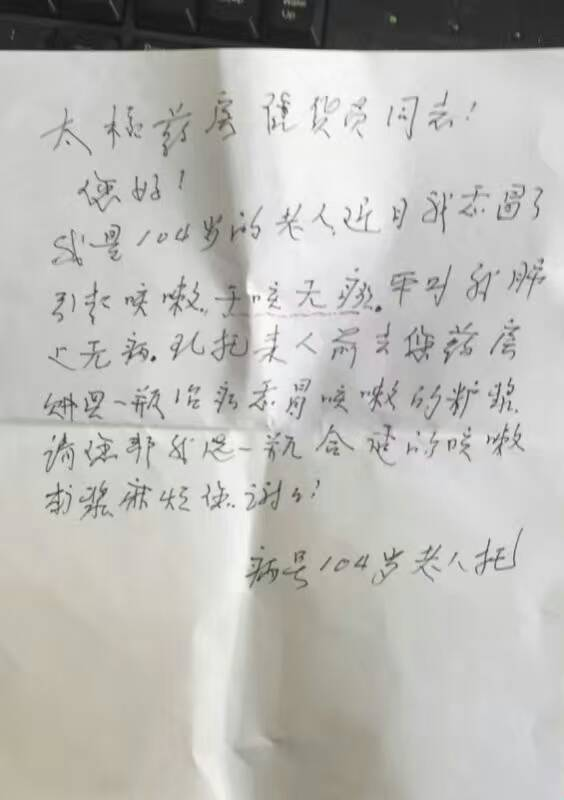 太极药房售货员同志!
您好!
我是104岁的老人,近日我感冒了
引起咳嗽,干咳无痰.平时我肺
上无病.现托来人前去您药房
购买一瓶治疗感冒咳嗽的糖浆.
请您帮我选一瓶合适的咳嗽
糖浆麻烦您.谢谢!
病号104岁老人托